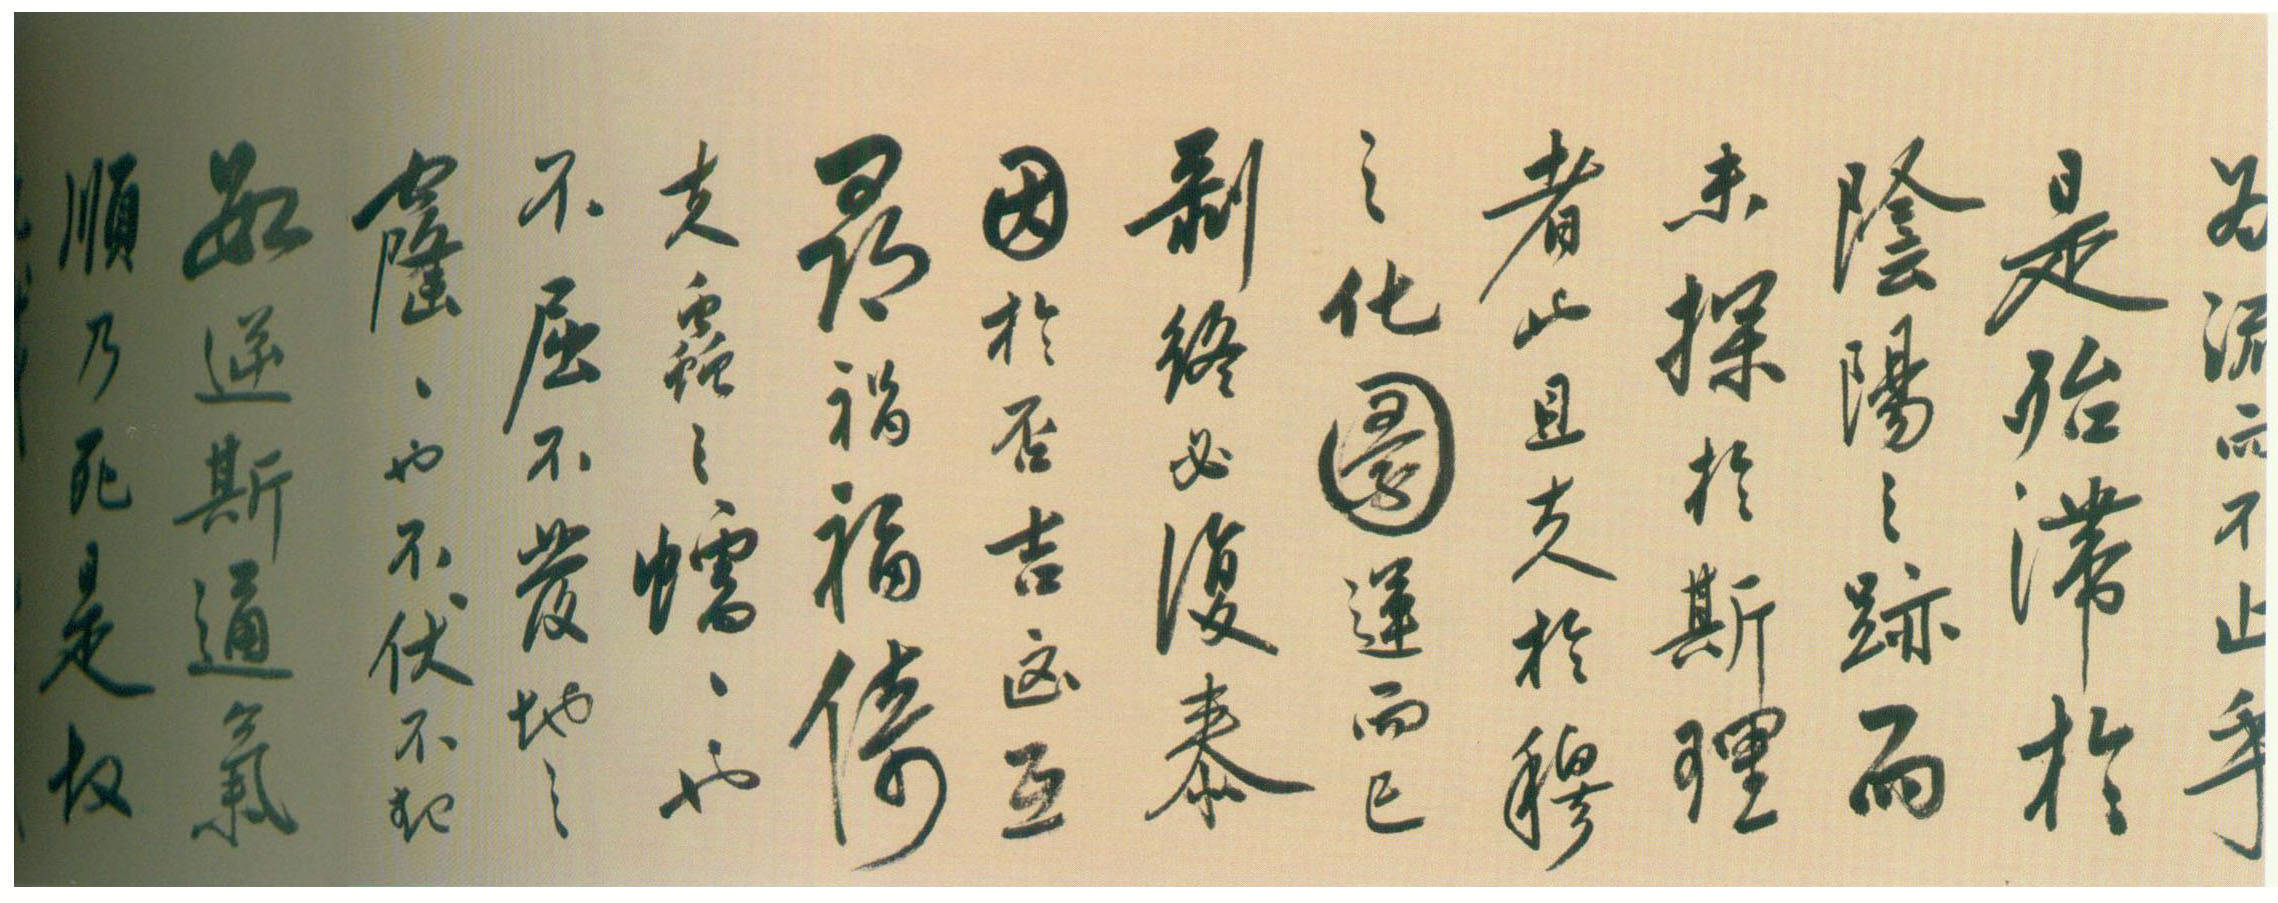 为流而不止乎
是殆滯於
陰陽之跡而
未探於斯理
者且夫於穆
之化圜運而已
剝終必復泰
因於否吉凶互
尋禍福倚
夫之蠕、也
不屈不發地之
窿、也不伏不犯
逆斯通氣
順乃死是故